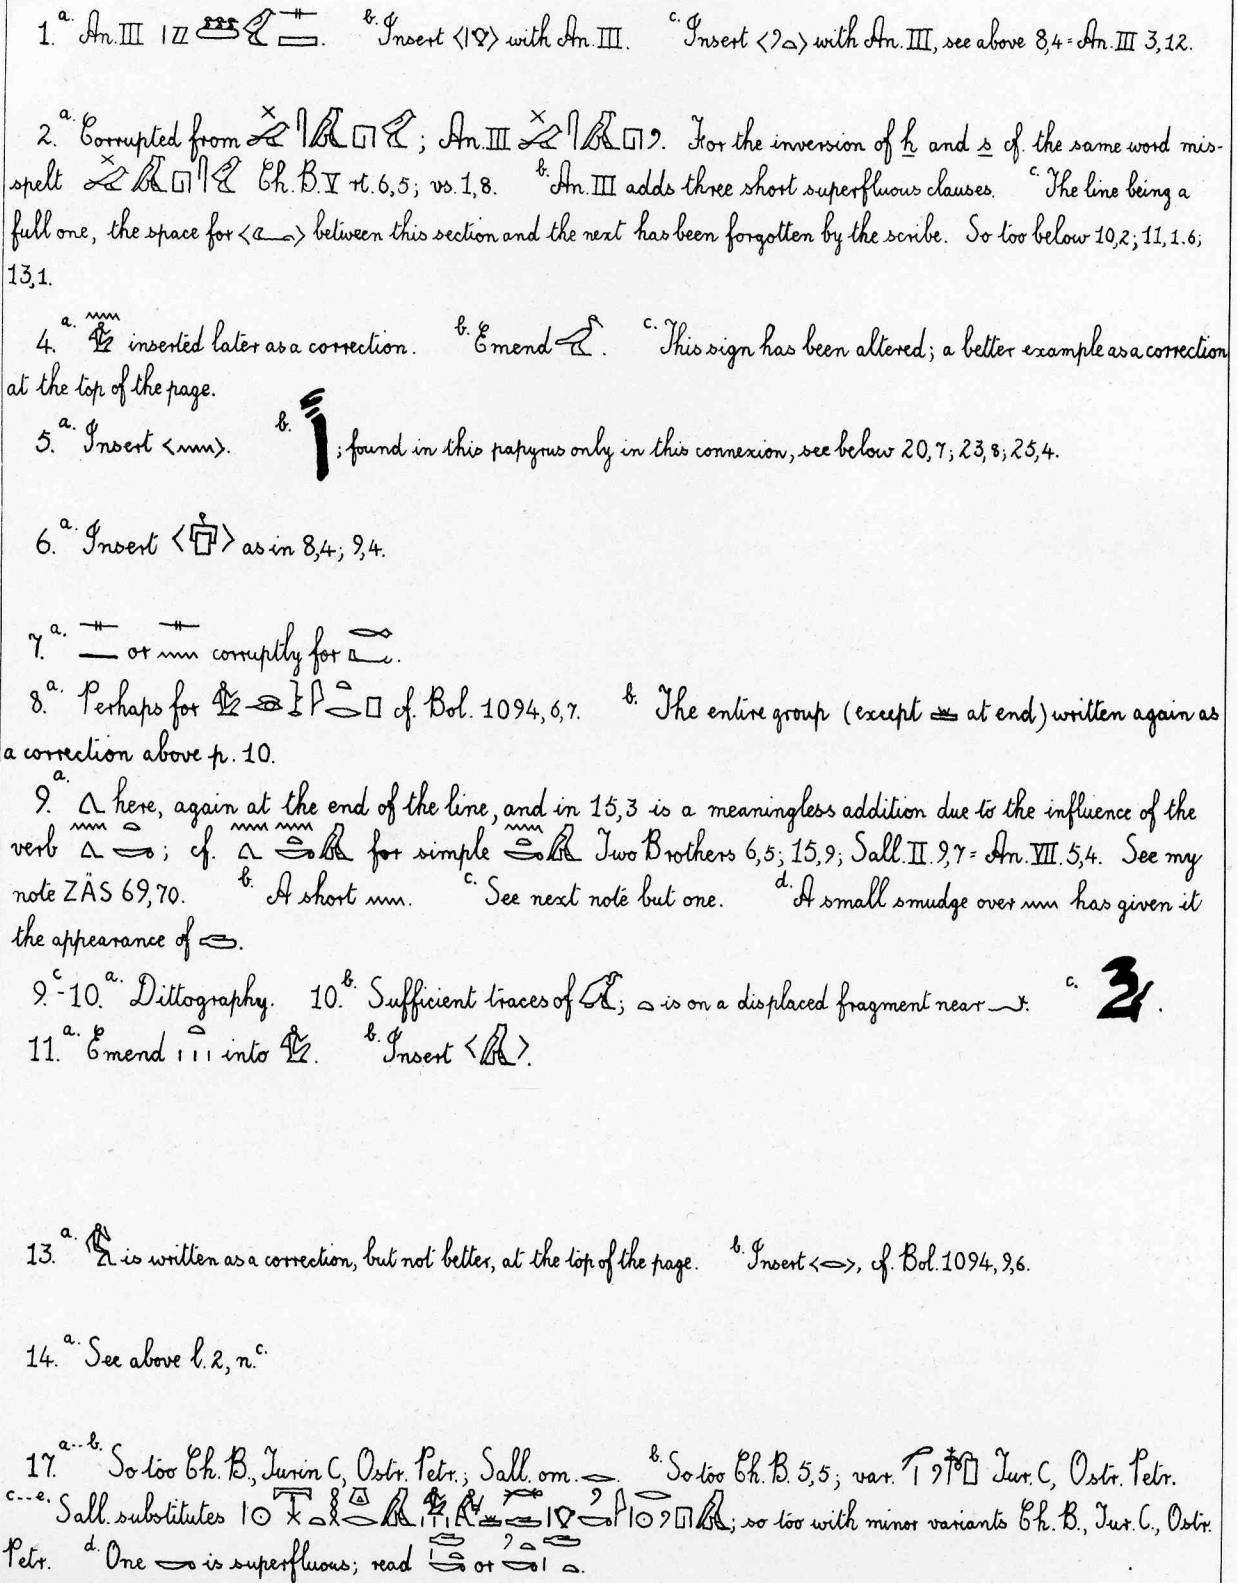 1. a. An. III . b. Insert < > with An. III. c. Insert < > with An. III, see above 8,4 = An. III 3,12.
2. a. Corrupted from ; An. III . For the inversion of h and s cf. the same word mis-
spelt Ch. B. V rt. 6,5; vs. 1,8. b. An. III adds three short superfluous clauses. c. The line being a
full one, the space for < > between this section and the next has been forgotten by the scribe. So too below 10,2; 11,1.6;
13,1.
4. a. inserted later as a correction. b. Emend . c. This sign has been altered; a better example as a correction
at the top of the page.
5. a. Insert < >. b. ; found in this papyrus only in this connexion, see below 20,7; 23,8; 25,4.
6. a. Insert < > as in 8,4; 9,4.
7. a. or corruptly for .
8. a. Perhaps for cf. Bol. 1094, 6,7. b. The entire group (except at end) written again as
a correction above p. 10.
9. a. here, again at the end of the line, and in 15,3 is a meaningless addition due to the influence of the
verb ; cf. for simple Two Brothers 6,5; 15,9; Sall. II. 9,7 = An. VII. 5,4. See my
note ZÄS 69,70. b. A short . c. See next note but one. d. A small smudge over has given it
the appearance of .
9. c-10. a. Dittography. 10. b. Sufficient traces of ; is on a displaced fragment near . c. .
11. a. Emend into . b. Insert < >.
13. a. is written as a correction, but not better, at the top of the page. b. Insert < >, cf. Bol. 1094, 9,6.
14. a. See above l. 2, n. c.
17. a--b. So too Ch. B., Turin C, Ostr. Petr.; Sall. om. . b. So too Ch. B. 5,5; var. Tur. C, Ostr. Petr.
c--e. Sall. substitutes ; so too with minor variants Ch. B., Tur. C., Ostr.
Petr. d. One is superfluous; read or .